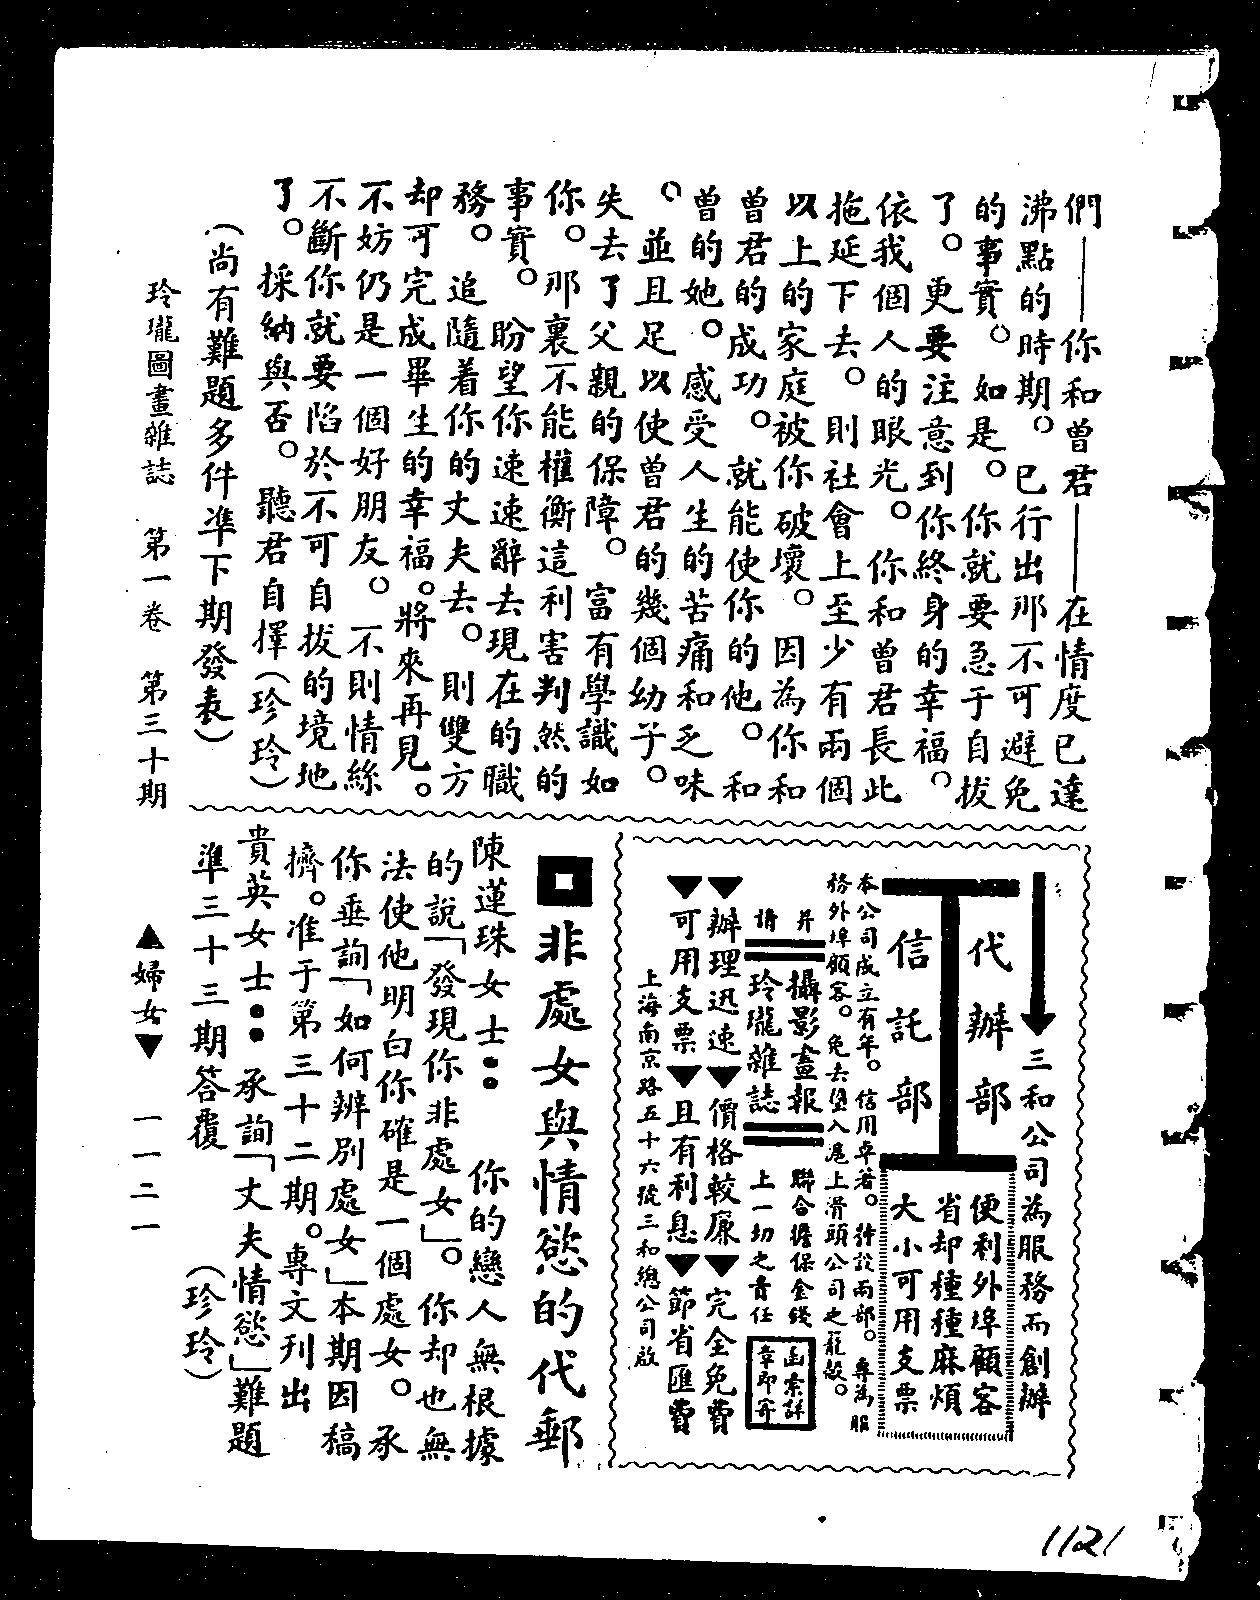 們——你和曾君——在情度已達
沸點的時期。已行出那不可避免
的事實。如是。你就要急于自拔
了。更要注意到你終身的幸福。
依我個人的眼光。你和曾君長此
拖延下去。則社會上至少有兩個
以上的家庭被你破壞。因為你和
曾君的成功。就能使你的他。和
曾的她。感受人生的苦痛和乏味
。並且足以使曾君的幾個幼子。
失去了父親的保障。富有學識如
你。那裏不能權衡這利害判然的
事實。盼望你速速辭去現在的職
務。追隨着你的丈夫去。則雙方
却可完成畢生的幸福。將來再見。
不妨仍是一個好朋友。不則情絲
不斷你就要陷於不可自拔的境地
了。採納與否。聽君自擇（珍玲）
（尚有難題多件準下期發表）
玲瓏圖畫雜誌　第一卷　第三十期
三和公司為服務而創辦
代辦部
信託部
便利外埠顧客
省却種種麻煩
大小可用支票
本公司成立有年。信用卓著。特設兩部。專為服
務外埠顧客。免去墮入滬上滑頭公司之龍殼。
并
攝影畫報
聯合擔保金錢
請
玲瓏雜誌
上一切之責任
函索詳
章即寄
▼辦理迅速▼價格較廉▼完全免費
▼可用支票▼且有利息▼節省匯費
上海南京路五十六號三和總公司啟
非處女與情慾的代郵
陳蓮珠女士：你的戀人無根據
的說「發現你非處女」。你却也無
法使他明白你確是一個處女。承
你垂詢「如何辨別處女」本期因稿
擠。准于第三十二期。專文刊出
貴英女士：承詢「丈夫情慾」難題
準三十三期答覆　（珍玲）
▲婦女▼　一一二一
1121